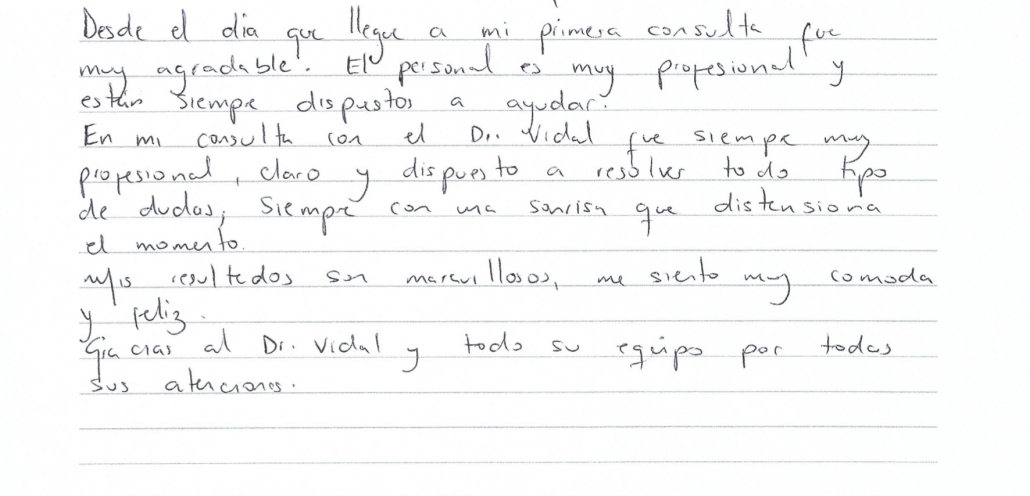 Desde el dia que llegue a mi primera consulta fue
muy agradable. El personal es muy profesional y
están siempre dispustos a ayudar.
En mi consulta con el Dr. Vidal fue siempre muy
profesional, claro y dispuesto a resolver todo tipo
de dudas, siempre con una sonrisa que distensiona
el momento.
Mis resultados son maravillosos, me siento muy comoda
y feliz.
Gracias al Dr. Vidal y todo su equipo por todas
sus atenciones.